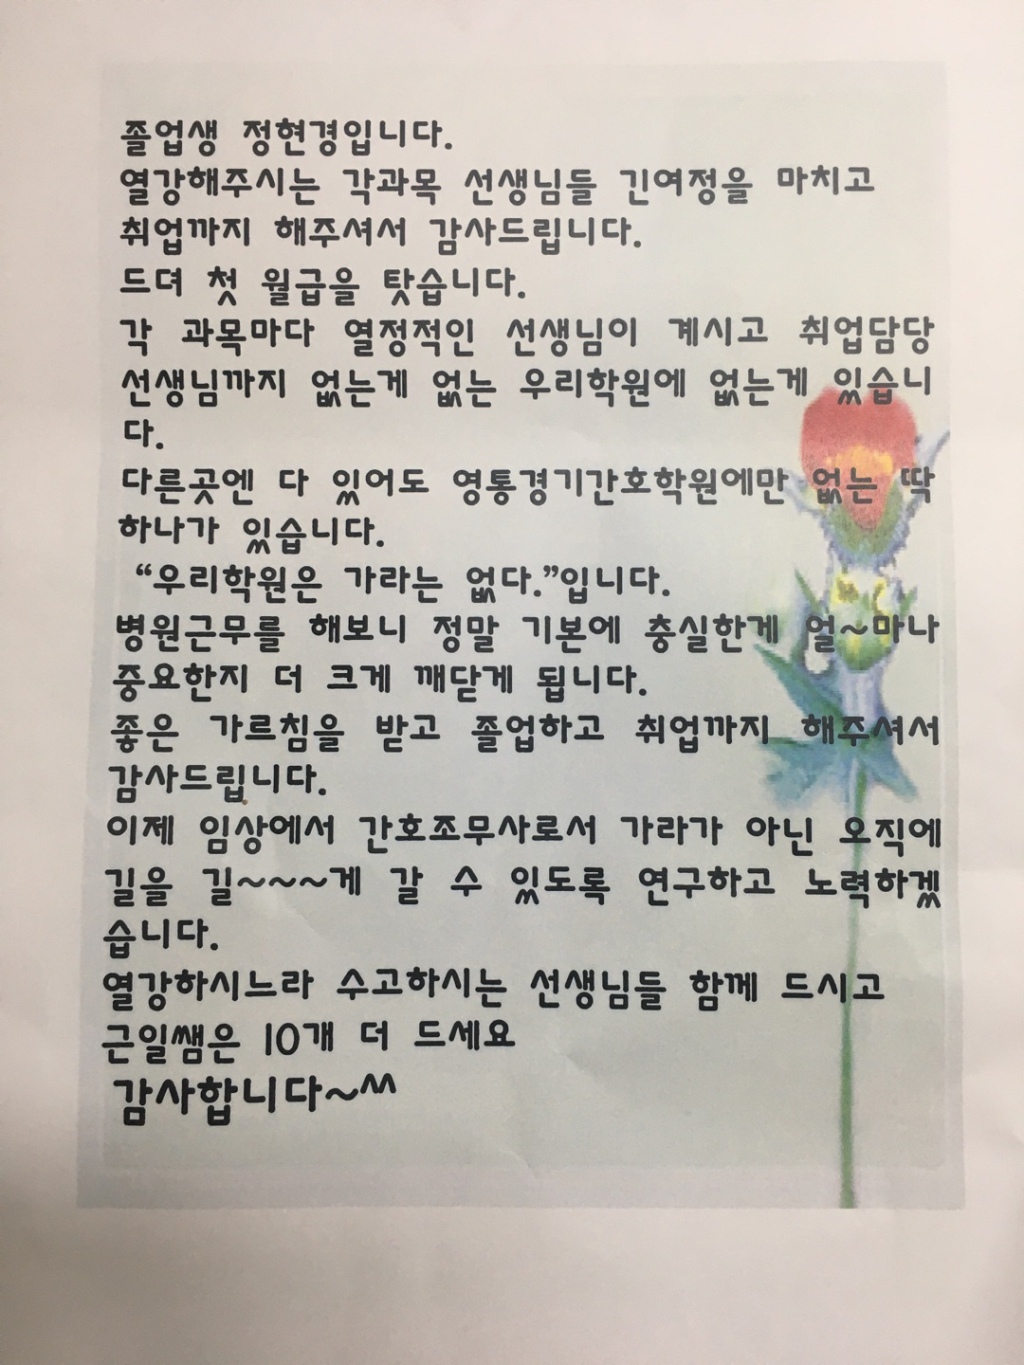 졸업생 정현경입니다.
열강해주시는 각과목 선생님들 긴여정을 마치고
취업까지 해주셔서 감사드립니다.
드뎌 첫 월급을 탓습니다.
각 과목마다 열정적인 선생님이 계시고 취업담당
선생님까지 없는게 없는 우리학원에 없는게 있습니
다.
다른곳엔 다 있어도 영통경기간호학원에만 없는 딱
하나가 있습니다.
“우리학원은 가라는 없다.”입니다.
병원근무를 해보니 정말 기본에 충실한게 얼~마나
중요한지 더 크게 깨닫게 됩니다.
좋은 가르침을 받고 졸업하고 취업까지 해주셔서
감사드립니다.
이제 임상에서 간호조무사로서 가라가 아닌 오직에
길을 길~~~게 갈 수 있도록 연구하고 노력하겠
습니다.
열강하시느라 수고하시는 선생님들 함께 드시고
근일쌤은 10개 더 드세요
감사합니다~^^